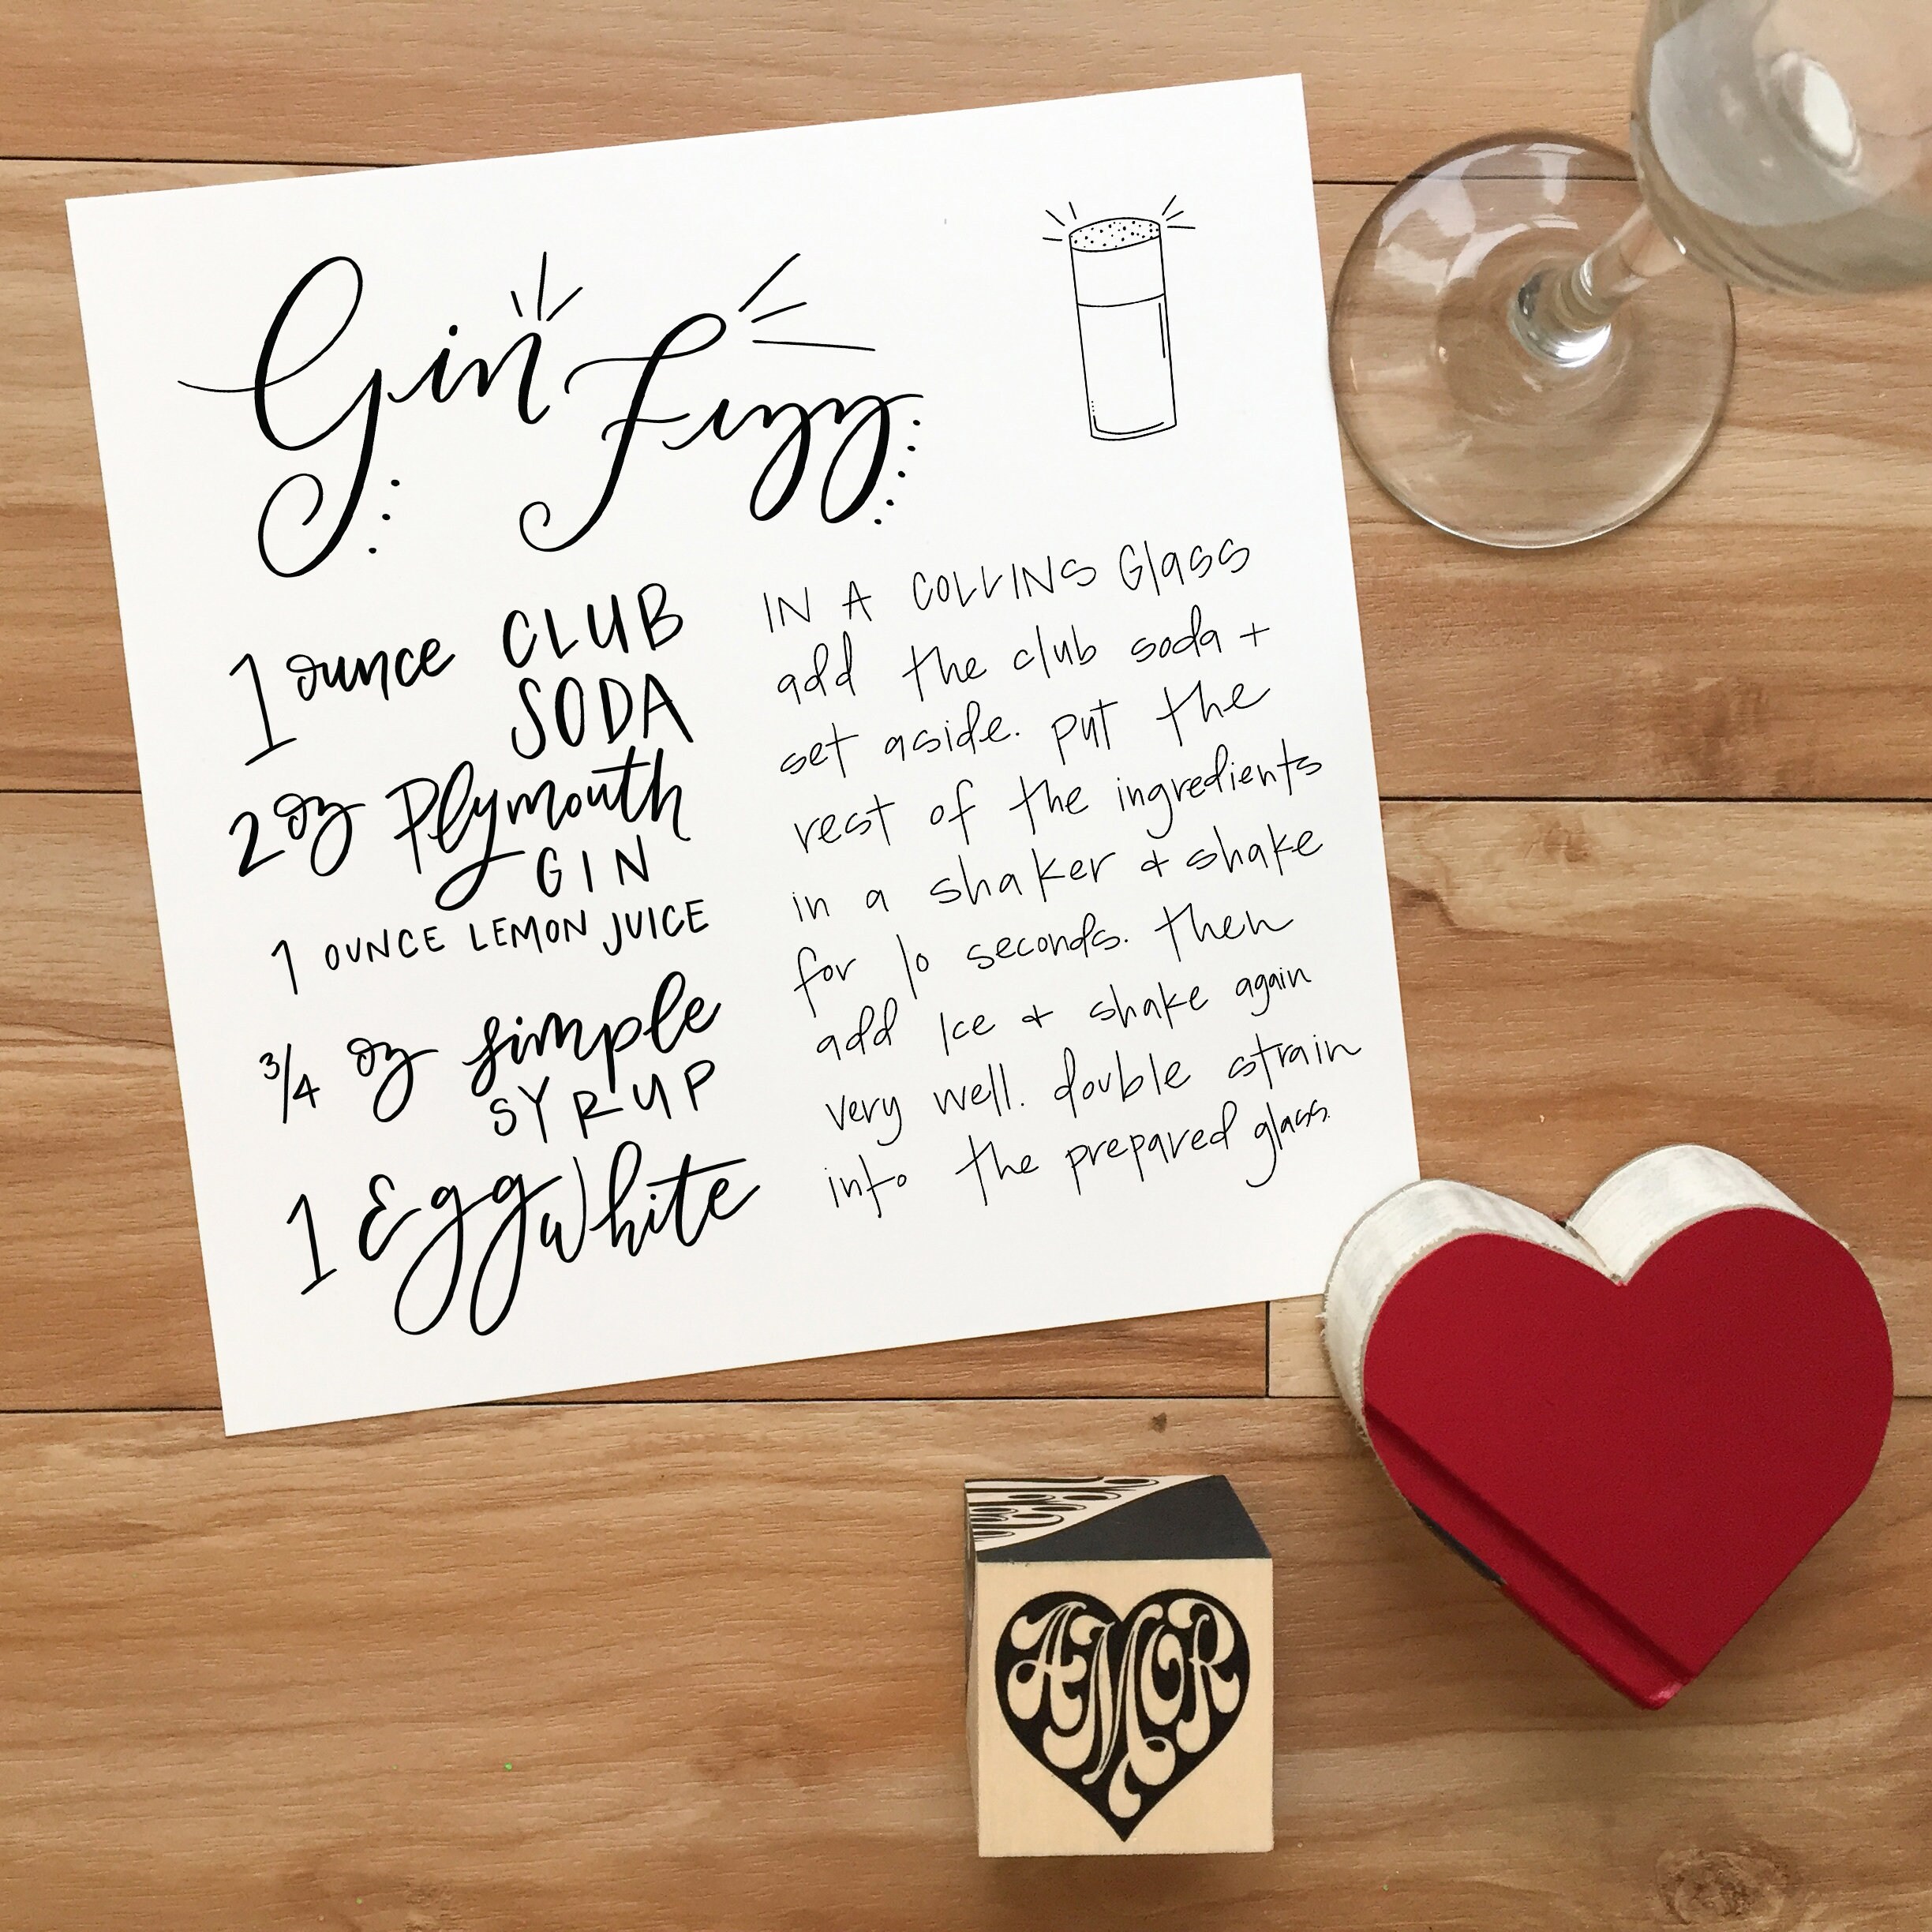 Gin Fizz
1 ounce CLUB
SODA
2 oz Plymouth
GIN
1 OUNCE LEMON JUICE
3/4 oz simple
SYRUP
1 Egg White
IN A COLLINS Glass
add the club soda +
set aside. put the
rest of the ingredients
in a shaker + shake
for 10 seconds. then
add Ice + shake again
very well. double strain
into the prepared glass.
AMOR